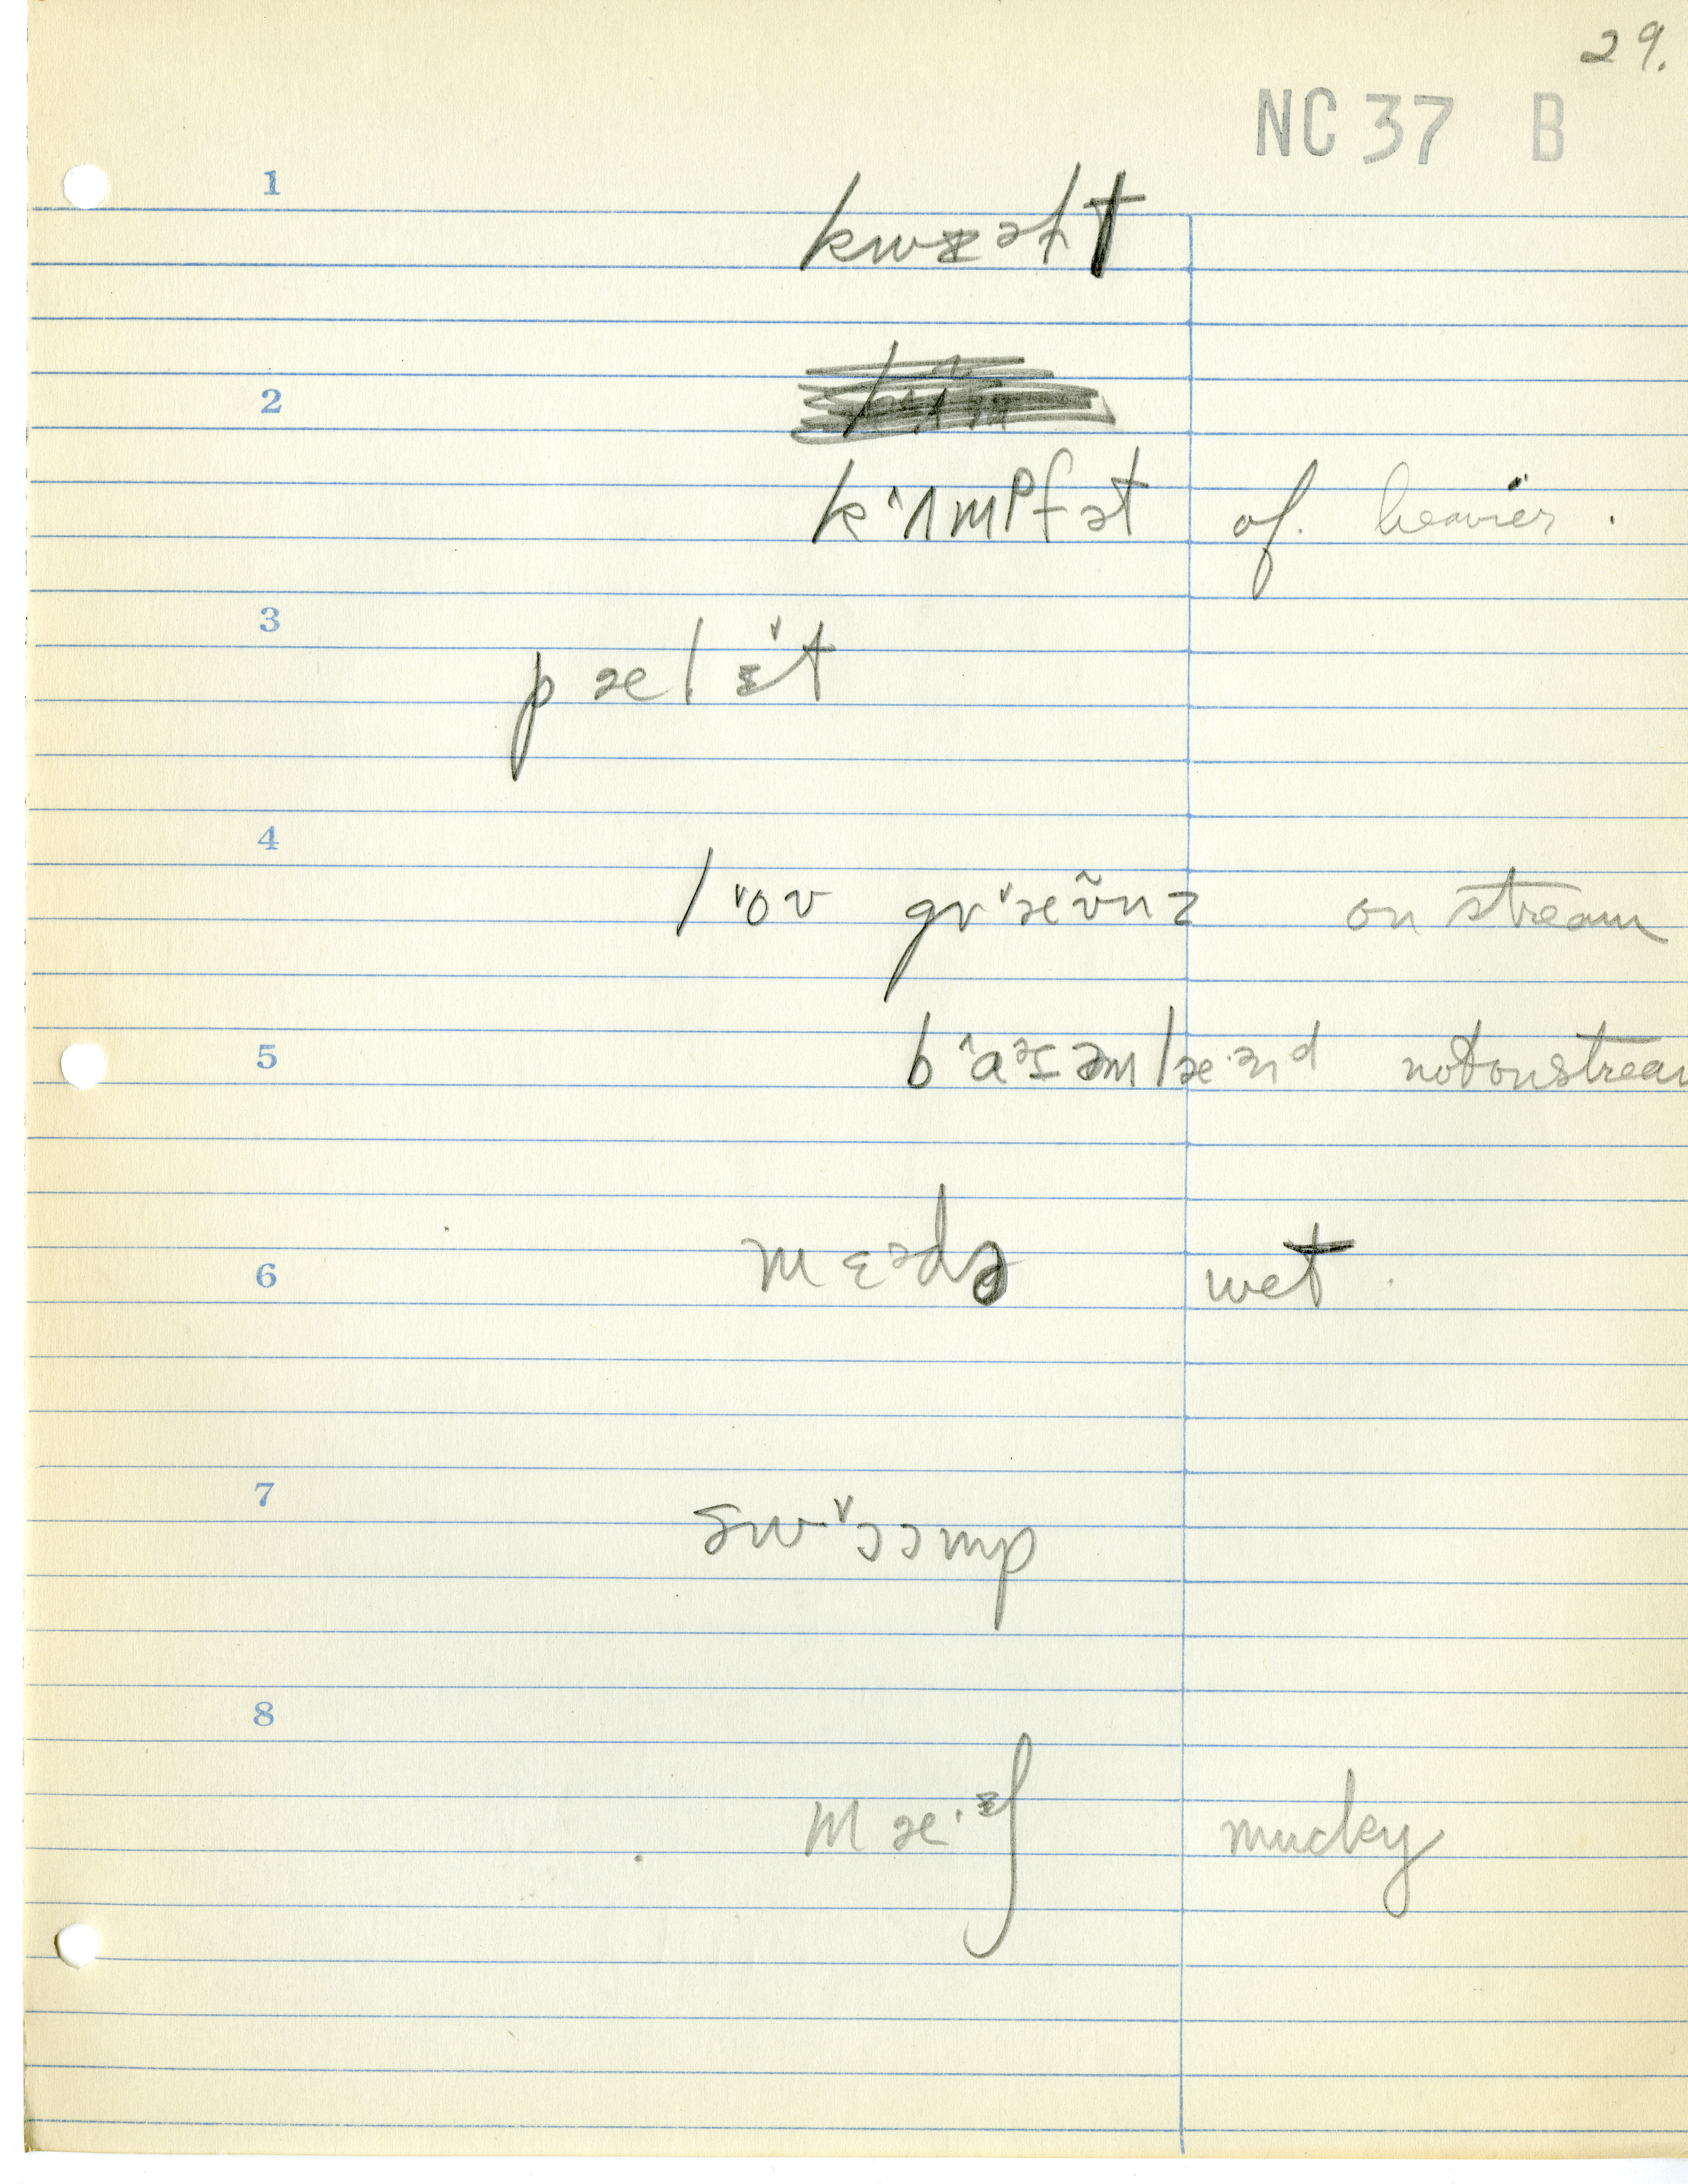 29.
NC 37 B
1
kwɪəɫt
2
k^ʌmᵖfət of. heavier.
3
pæl ɪ̌t
4
l ˅oʊ gr˅æʊ̃nz on stream
5
b^ɑᵊtəmlæ·ənd not on stream
6
mɛədə wet.
7
sw·˅ɔɔmp
8
mæ·ɪʃ mucky